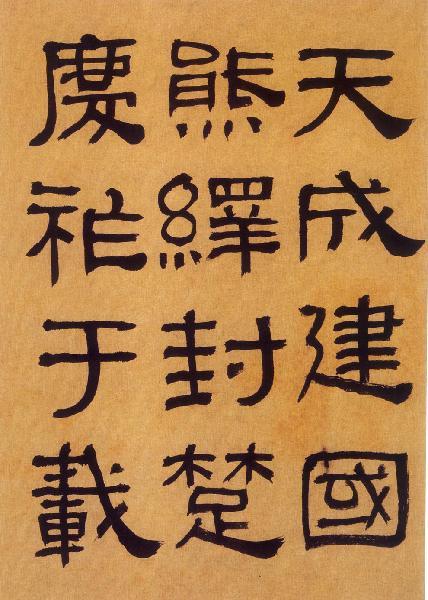 天成建國
熊繹封楚
慶祚于載